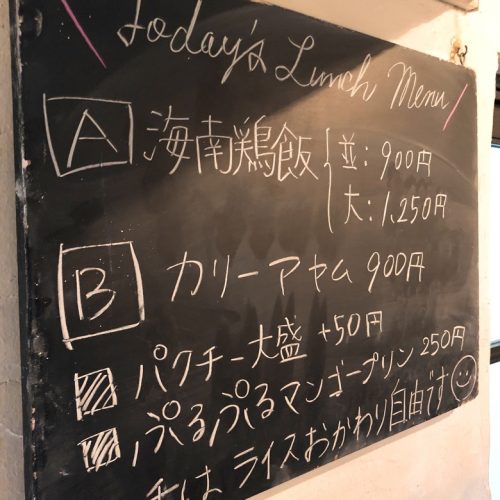 Today's Lunch Menu
A 海南鶏飯 並: 900円
大: 1,250円
B カリーアヤム 900円
パクチー大盛 +50円
ぷるぷるマンゴープリン 250円
はライスおかわり自由です